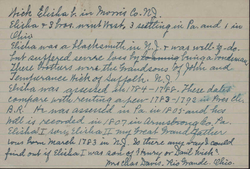 Wick Elisha I. in Morris Co. N.J.
Elisha & 3 bros. went West, 3 settling in Pa. and 1 in
Ohio
Elisha was a blacksmith in N.J. & was well to do
but suffered severe loss by
These brothers were the Grandsons of John and
Temperance Wick of Suffolk. N.J.
Elisha was assessed in 1789-1793. These dates
compare with renting a pew - 1783-1792 in Pres. Ch.
B.R. He was assessed in Pa. in 1803 and his
Will is recorded in 1807 in Armstrong Co. Pa.
Elisha I son, Elisha II my Great Grandfather
was born March 1783 in N.J. Is there any way I could
find out if Elisha I was son of Henry or Dan'l Wick
Mrs Chas Davis. Rio Grande. Ohio.